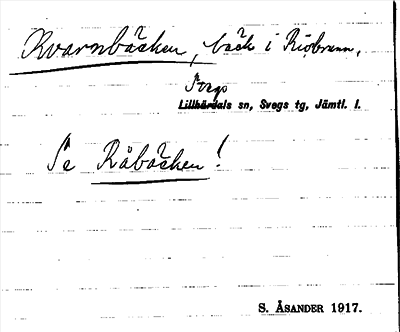 Kvarnbäcken, bäck i Riöbrunn,
Svegs
Lillhärdals sn, Svegs tg, Jämtl. l.
Se Råbäcken!
S. ÅSANDER 1917.